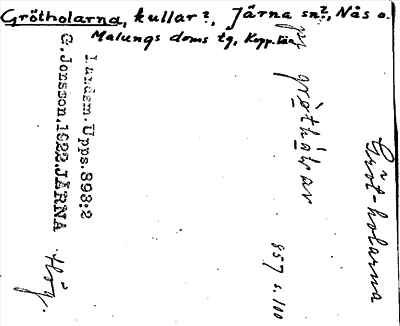 Grötholarna, kullar?, Järna sn?, Nås o.
Malungs doms tg, Kopp. län
Gröt-holarna
pr gröthòlar
857 s. 100
Landsm. Upps. 898:2
G. Jonsson. 1922. JÄRNA
Hög.